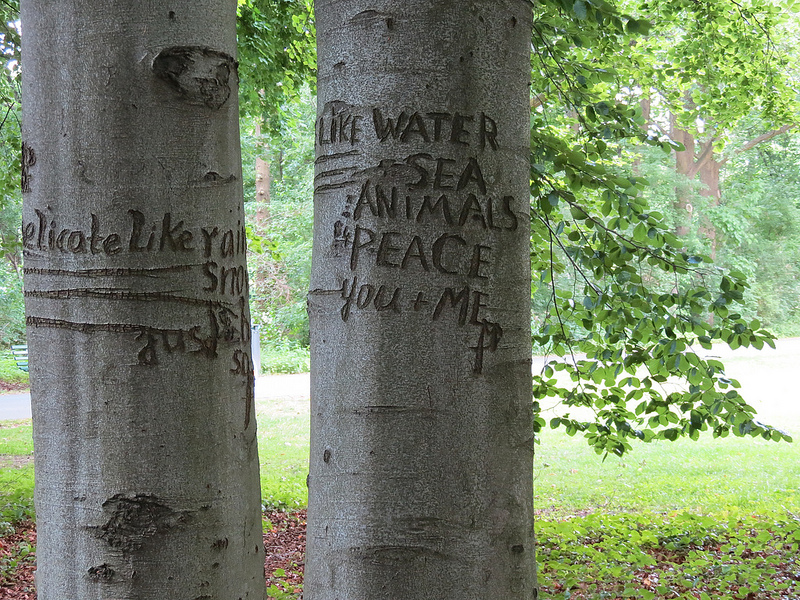 elicate like rai
sno
LIKE WATER
SEA
ANIMALS
PEACE
you + ME